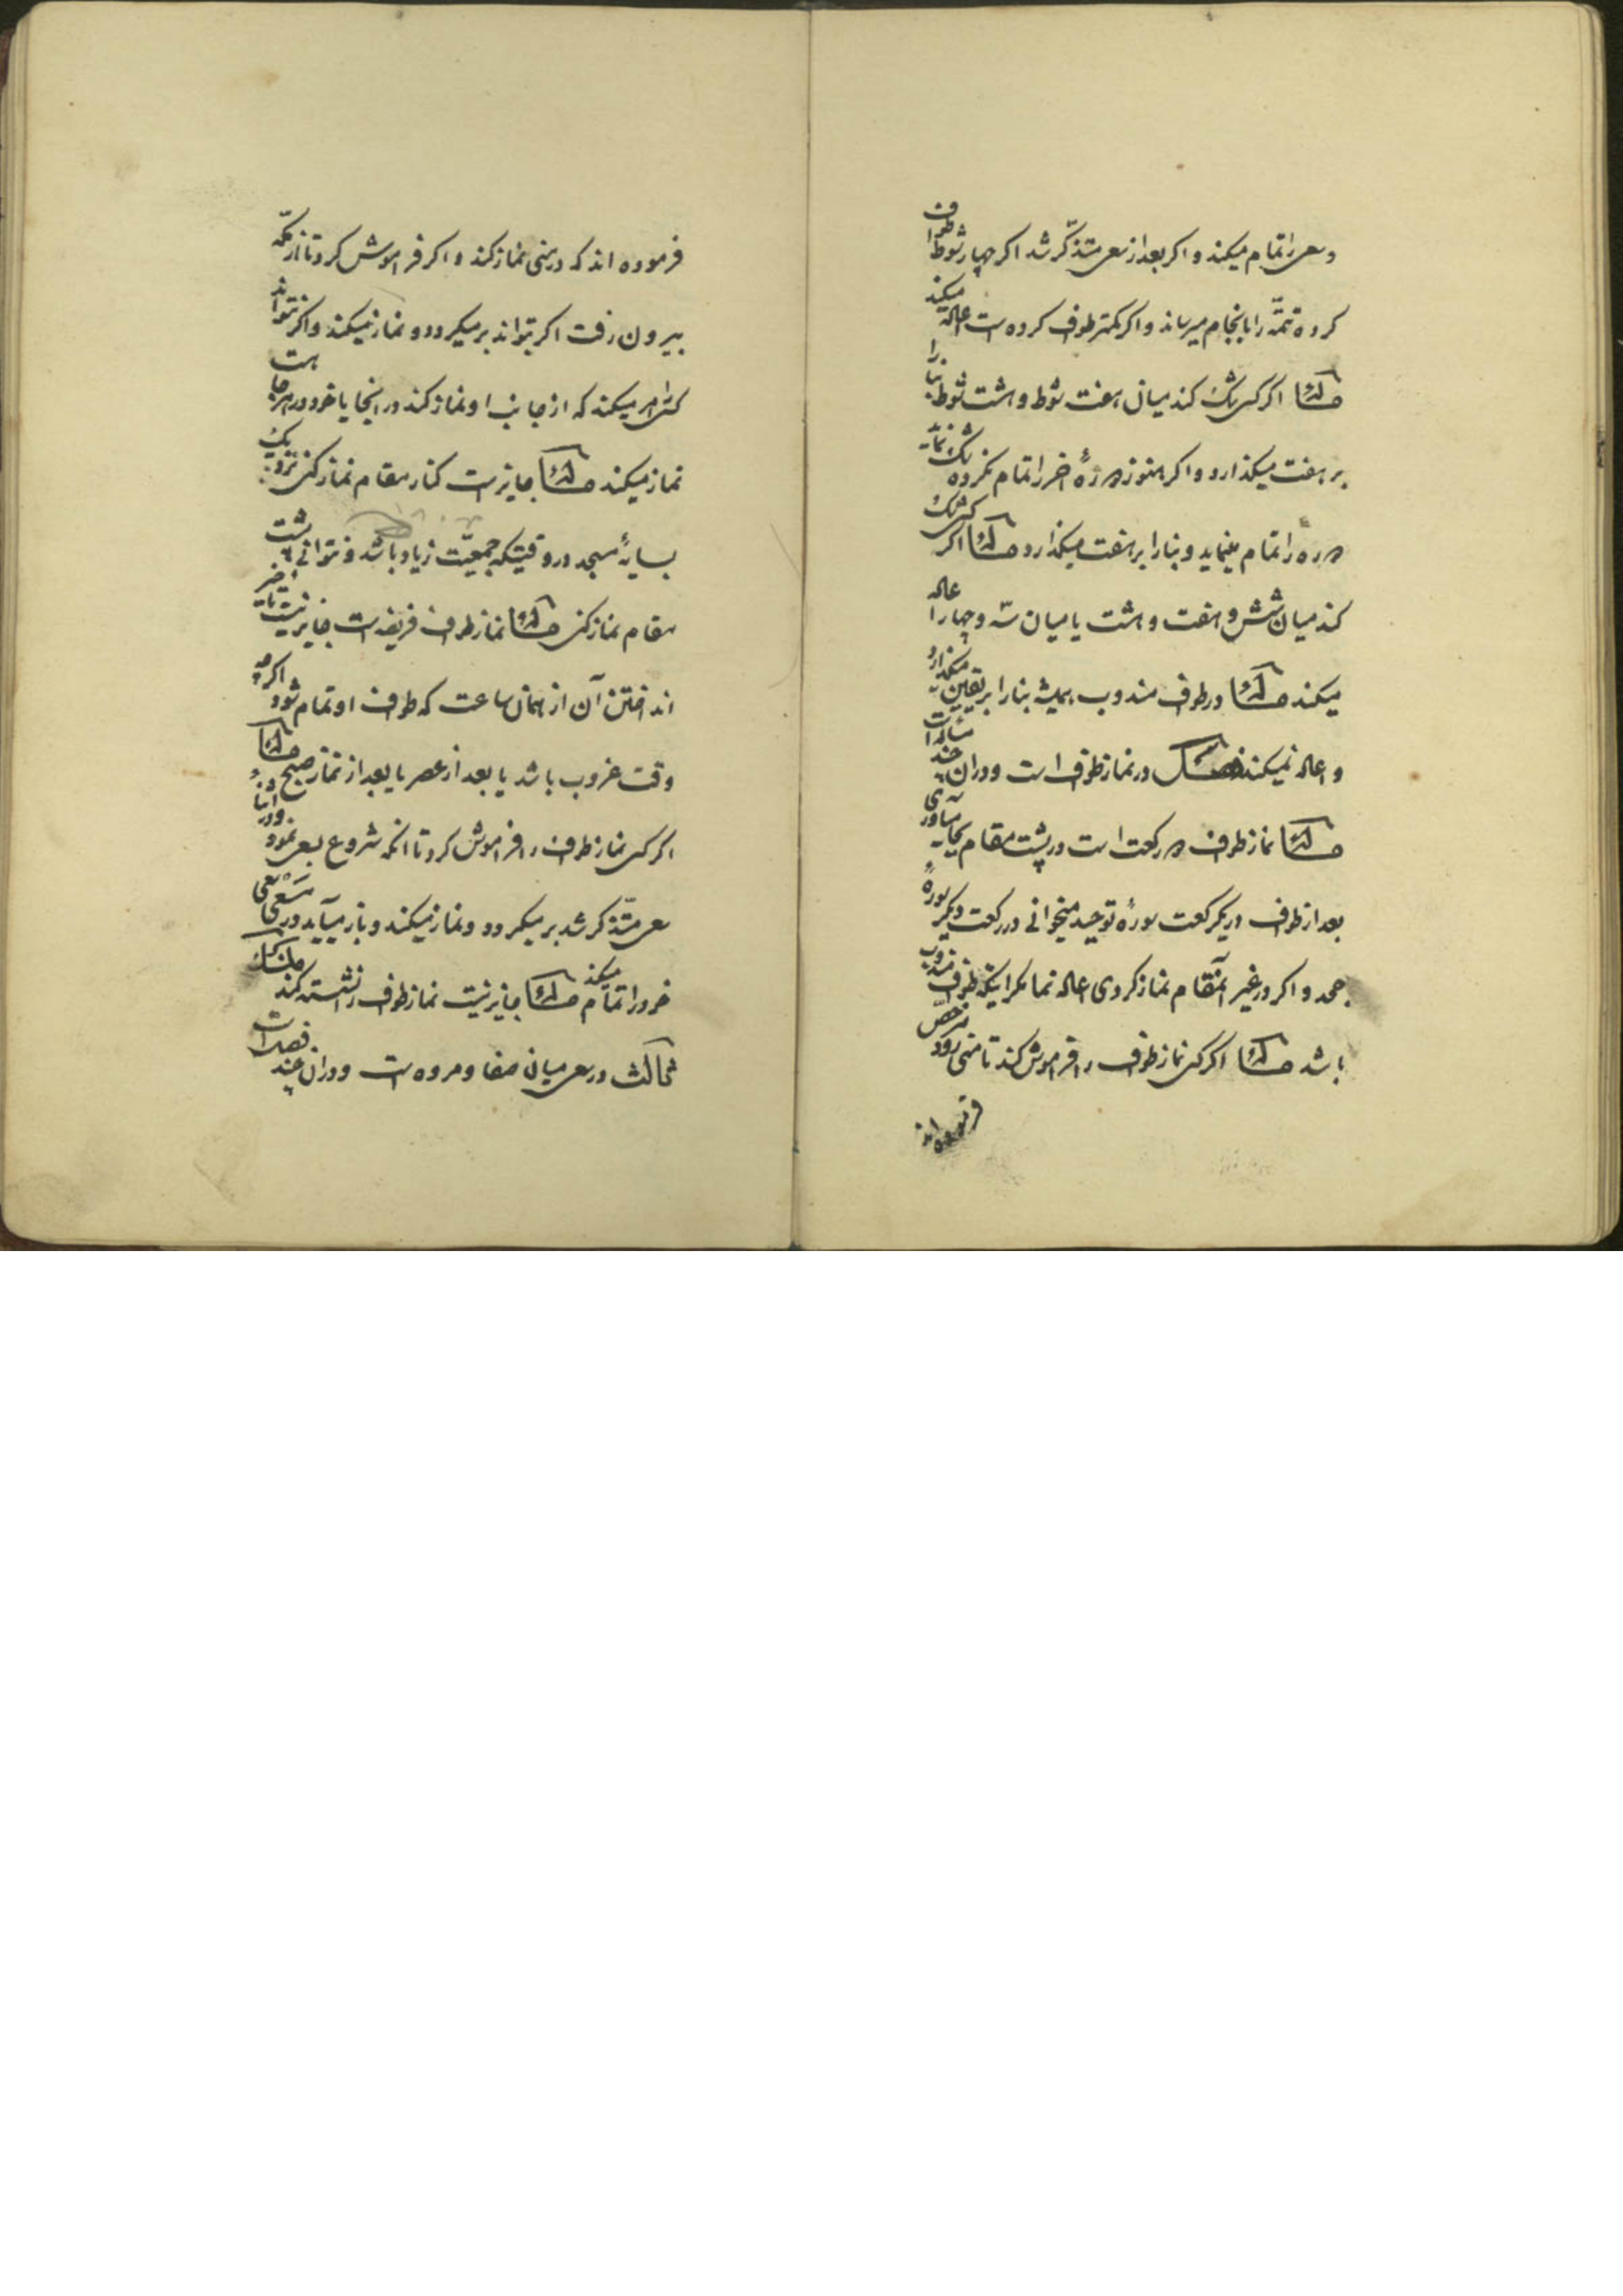 و سعی را تمام میکند و اکر بعد از سعی متذکّر شد اکر چهار شوط طواف
کرده تتمّه را بانجام میرساند و اکر کمتر طواف کرده است اعاده میکند
مسئله اکر کسی شک کند میان هفت شوط و هشت شوط بنا را
بر هفت میکذارد و اکر هنوز دورهٔ اخر را تمام نکرده شک نماید
دوره را تمام مینماید و بنا را بر هفت میکذارد مسئله اکر کسی شک
کند میان شش و هفت و هشت یا میان سه و چهار اعاده
میکند مسئله در طواف مندوب همیشه بنا را بر یقین میکذارد
و اعاده نمیکند فصل در نماز طواف است و در ان چند مسئله است
مسئله نماز طواف دو رکعت است در پشت مقام بجا میاوری
بعد از طواف در یکرکعت سورهٔ توحید میخوانی در رکعت دیکر سورهٔ
جحد و اکر در غیر آنمقام نماز کردی اعاده نما مکر اینکه طواف مندوب
باشد مسئله اکر کسی نماز طواف را فراموش کند تا منی رود مرخص
فرموده اند
فرموده اند که در منی نماز کند و اکر فراموش کرد تا از مکّه
بیرون رفت اکر بتواند برمیکردد و نماز میکند و اکر نتواند
کسی را امر میکند که از جانب او نماز کند در انجا یا خود در هر جا هست
نماز میکند مسئله جایز است کنار مقام نماز کنی نزدیک
بسایهٔ مسجد در وقتیکه جمعیّت زیاد باشد و نتوانی پشت
مقام نماز کنی مسئله نماز طواف فریضه است جایز نیست تاخیر
انداختن آن از همان ساعت که طواف او تمام شود اکرچه
وقت غروب باشد یا بعد از عصر یا بعد از نماز صبح مسئله
اکر کسی نماز طواف را فراموش کرد تا انکه شروع بسعی نمود و در اثناء
سعی متذّکر شد بر میکردد و نماز میکند و باز میآید در مَسْعی سعی
خود را تمام میکند مسئله جایز نیست نماز طواف را نشسته کند
ثالث در سعی میان صفا و مروه است و در ان چند فصل است